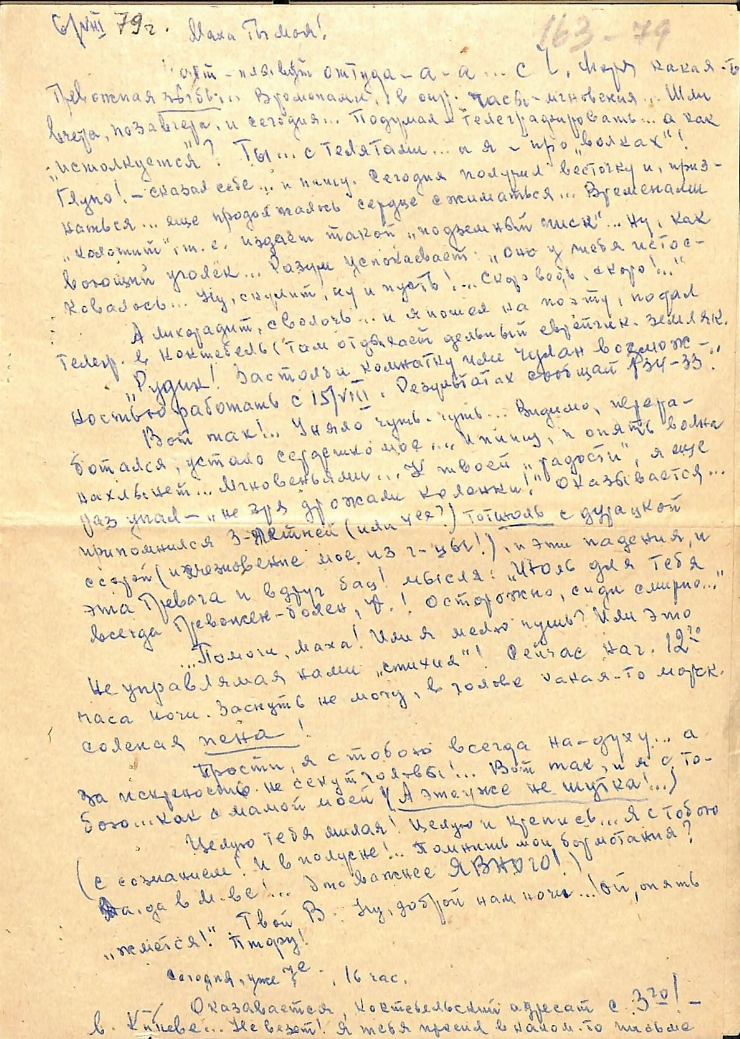 6/VIII 79 г. Маха Ты моя!
163-79
от - туда - а - а ... с Ч. моря какая-то
тревожная зыбь ... Временами, в опр. часы-мгновения ... Шли
вчера, позавчера, и сегодня ... Подумал - Телеграфировать ... а как
"истолкуется"? Ты ... с телятами ... а я - про "волках"!
Глупо! - сказал себе ... и пишу. Сегодня получил весточку и, приз-
наться ... еще продолжаясь сердце сжиматься ... Временами
"колотит", т. е. издает такой "подземный писк" ... ну, как
воющий уголек ... Разум успокаивает: "оно у тебя истос-
ковалось ... Ну, скулит, ну и пусть! ... Скоро ведь, скоро! ..."
А лихорадит, сволочь ... и я пошел на почту, подал
телегр. в Коктебель (там отдыхает дельный земляк.
"Рудик! Застолби комнатку или чулан возмож-
ностью работать с 15/VIII. Результатах сообщай 134-33."
Вот так! .. Уняло чуть-чуть ... Видимо, перера-
ботался, устало сердешко мое ... И пишу, и опять волна
нахлынет ... Мгновеньями ... У твоей "радости", я еще
раз угал - "не зря дрожали коленки!" Оказывается ...
припомнился 3-летней (или чех?) то июль с дурацкой
ссорой (исчезновение мое из г-цы!), и эти падения, и
эта Тревога и вдруг бац! мысля: "Июль для тебя
всегда Тревожен-болен, В.! Осторожно, сиди смирно ..."
"Помоги, Маха! Или я мелю чушь? Или это
не управляемая нами "стихия"! Сейчас нач. 12го
часа ночи. Заснуть не могу, в голове какая-то морск.
соленая пена!
Прости, я с тобою всегда на-духу ... а
за искренность не секут головы! ... Вот так, и я с то-
бою ... как с мамой моей (А это уже не шутка! ...)
Целую тебя милая! Целую и крепись ... я с тобою
(с сознанием! и в полусне! .. Помнишь мои бормотания?
Да, да в М-ве! ... Это важнее ЯВНОГО!)
Твой В. Ну, доброй нам ночи ... Ой, опять
"жмется!" Птору!
Сегодня, уже 7е, 16 час.
Оказывается, коктебельский адресат с 3го! -
в Киеве ... Не везет! Я тебя просил в каком-то письме